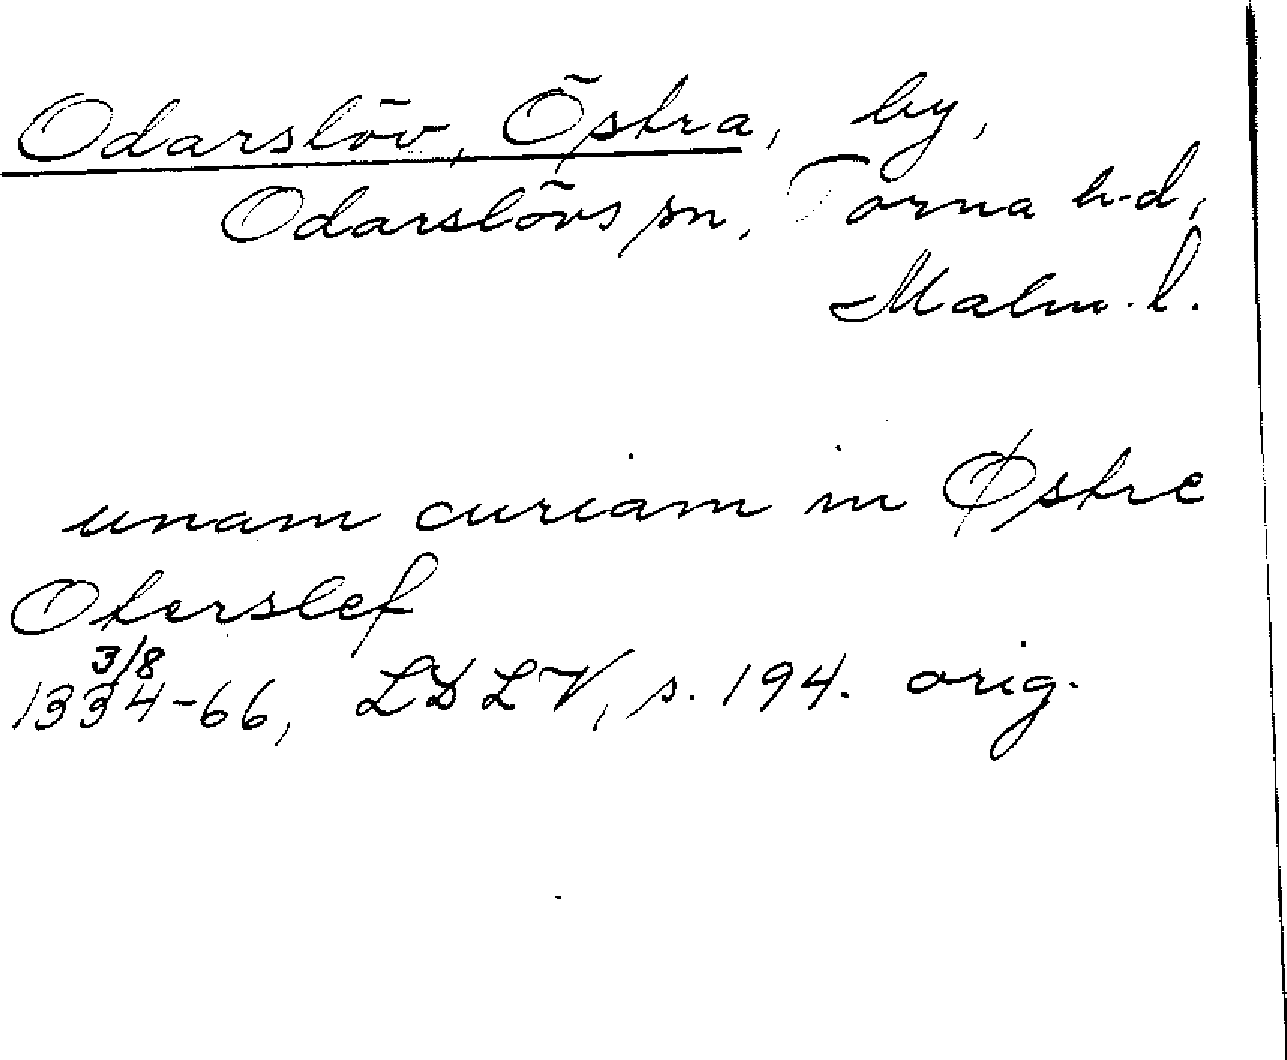 Odarslöv, Östra, by,
Odarslövs sn, Torna h-d,
Malm. l.
unam curiam in Østre
Oterslef
3/8
1334-66, LDLV, s. 194. orig.